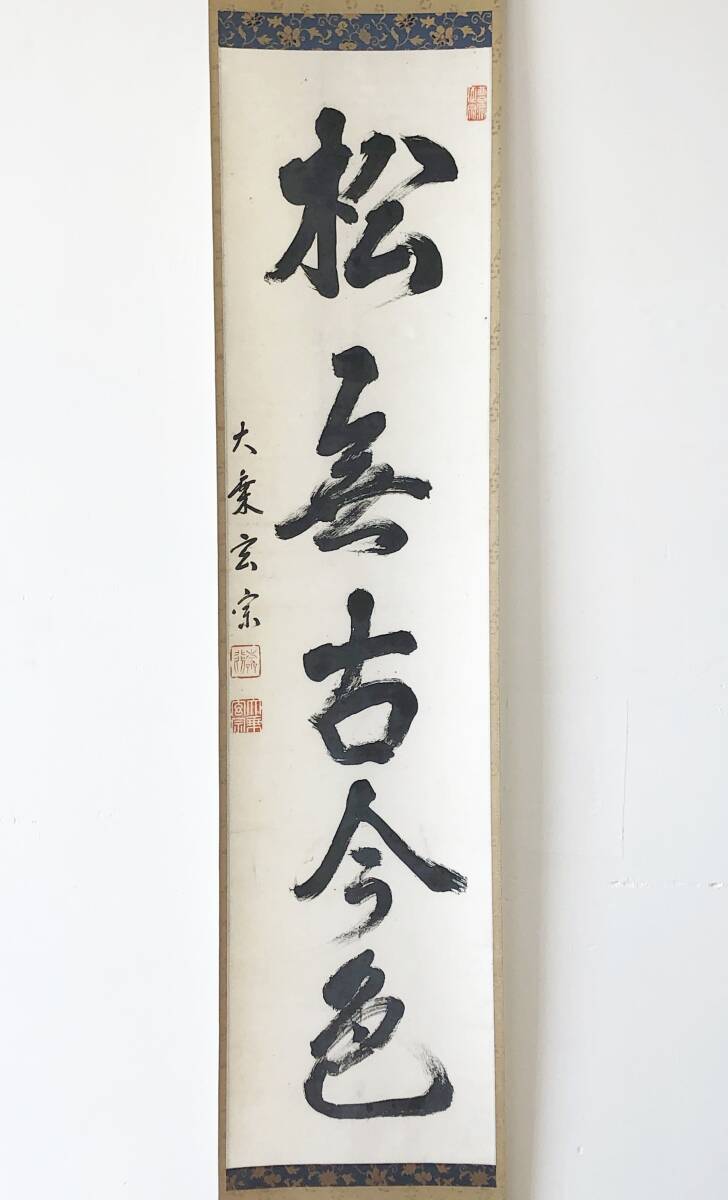 松無古今色
大乗玄宗